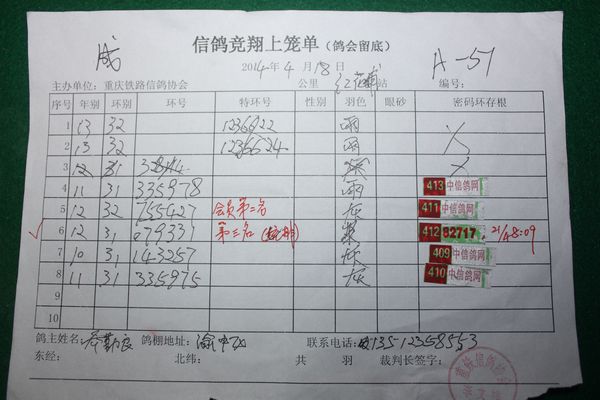 信鸽竞翔上笼单（鸽会留底）
成 2014年4月18日 A-51
主办单位：重庆铁路信鸽协会 公里 站 编号：
序号 年别 环别 环号 特环号 性别 羽色 眼砂 密码环存根
1 13 32 1236622 雨
2 13 32 1236624 雨
3 12 31
4 11 31 335978 雨 413 中信鸽网
5 12 32 755427 会员第二名 灰 411 中信鸽网
6 12 31 079331 第三名 412 82717 21/4 8:09
7 10 31 143257 灰 409 中信鸽网
8 11 31 335975 灰 410 中信鸽网
9
10
鸽主姓名： 鸽棚地址：渝中区 联系电话：13512358553
东经： 北纬： 共 羽 裁判长签字：